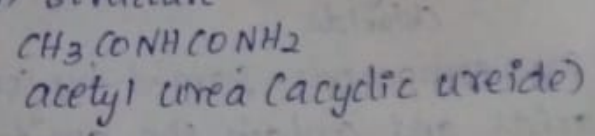 CH3 CONHCONH2
acetyl urea (acyclic ureide)